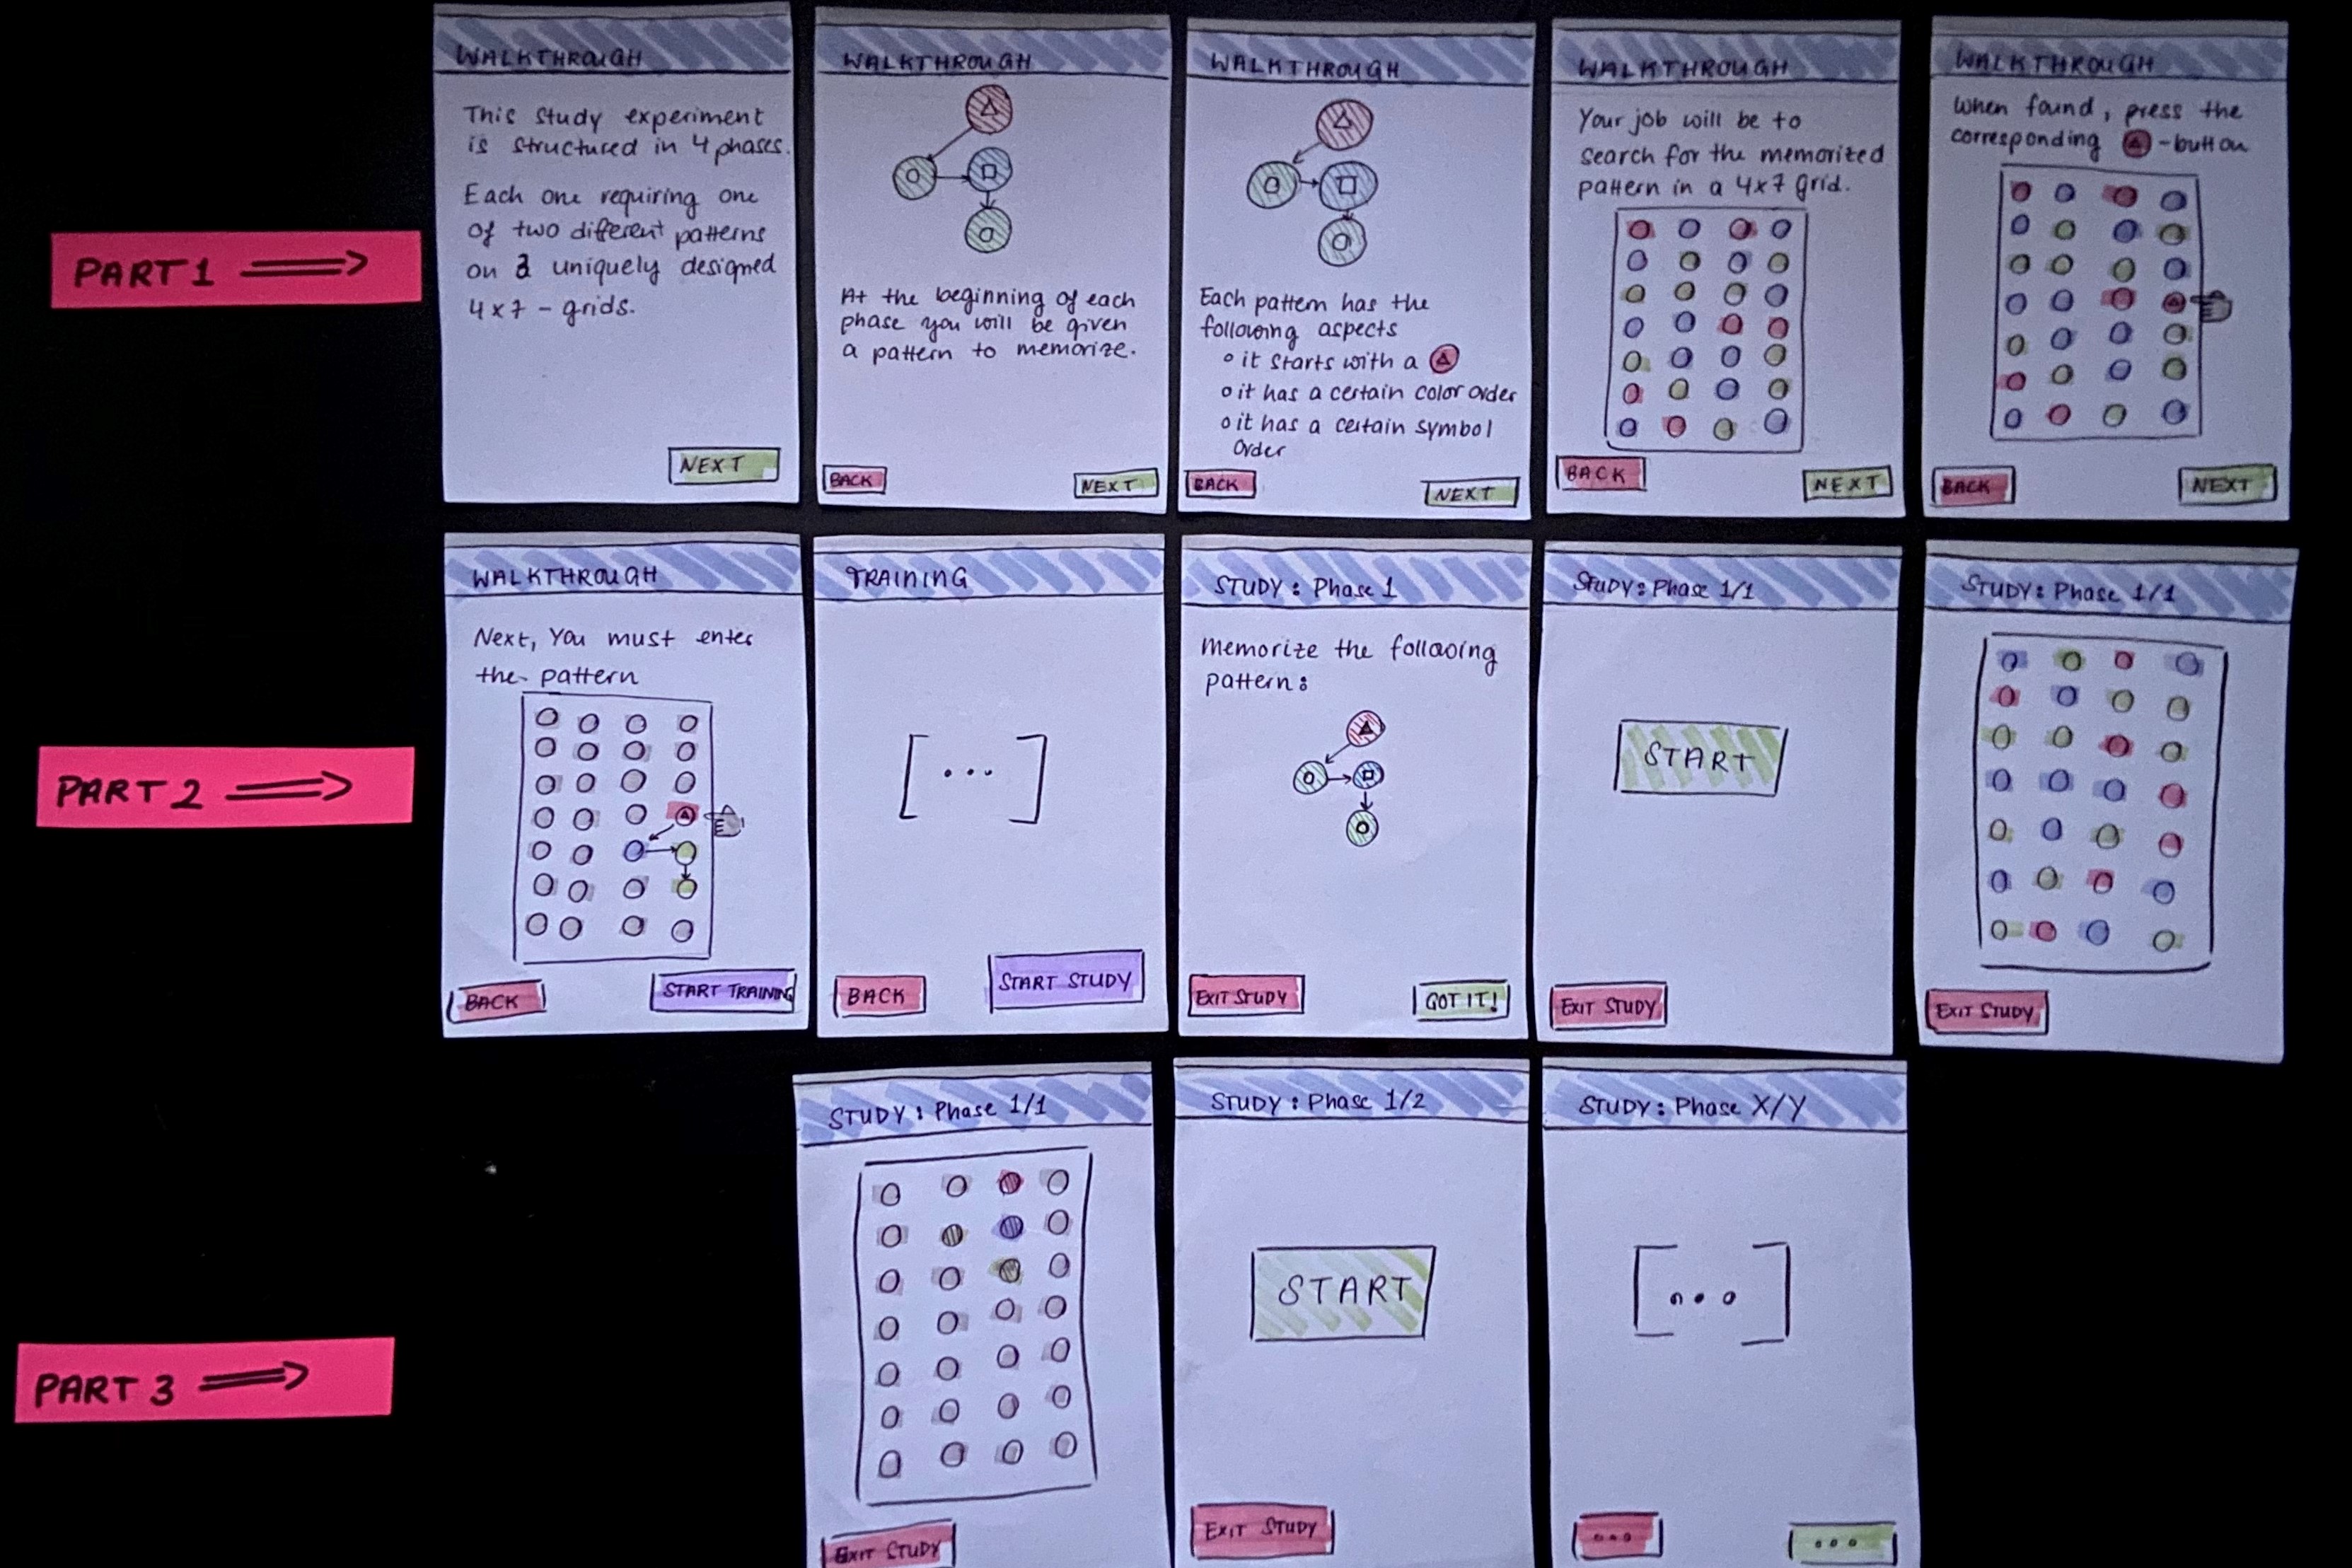 PART 1 ⟹
WALKTHROUGH
This study experiment
is structured in 4 phases.
Each one requiring one
of two different patterns
on 2 uniquely designed
4x7 - grids.
NEXT
WALKTHROUGH
At the beginning of each
phase you will be given
a pattern to memorize.
BACK
NEXT
WALKTHROUGH
Each pattern has the
following aspects
o it starts with a
o it has a certain color order
o it has a certain symbol
order
BACK
NEXT
WALKTHROUGH
Your job will be to
search for the memorized
pattern in a 4x7 grid.
BACK
NEXT
WALKTHROUGH
When found, press the
corresponding -button
BACK
NEXT
PART 2 ⟹
WALKTHROUGH
Next, You must enter
the pattern
BACK
START TRAINING
TRAINING
[...]
BACK
START STUDY
STUDY: Phase 1
Memorize the following
pattern:
EXIT STUDY
GOT IT!
STUDY: Phase 1/1
START
EXIT STUDY
STUDY: Phase 1/1
EXIT STUDY
PART 3 ⟹
STUDY: Phase 1/1
EXIT STUDY
STUDY: Phase 1/2
START
EXIT STUDY
STUDY: Phase X/Y
[...]
...
...